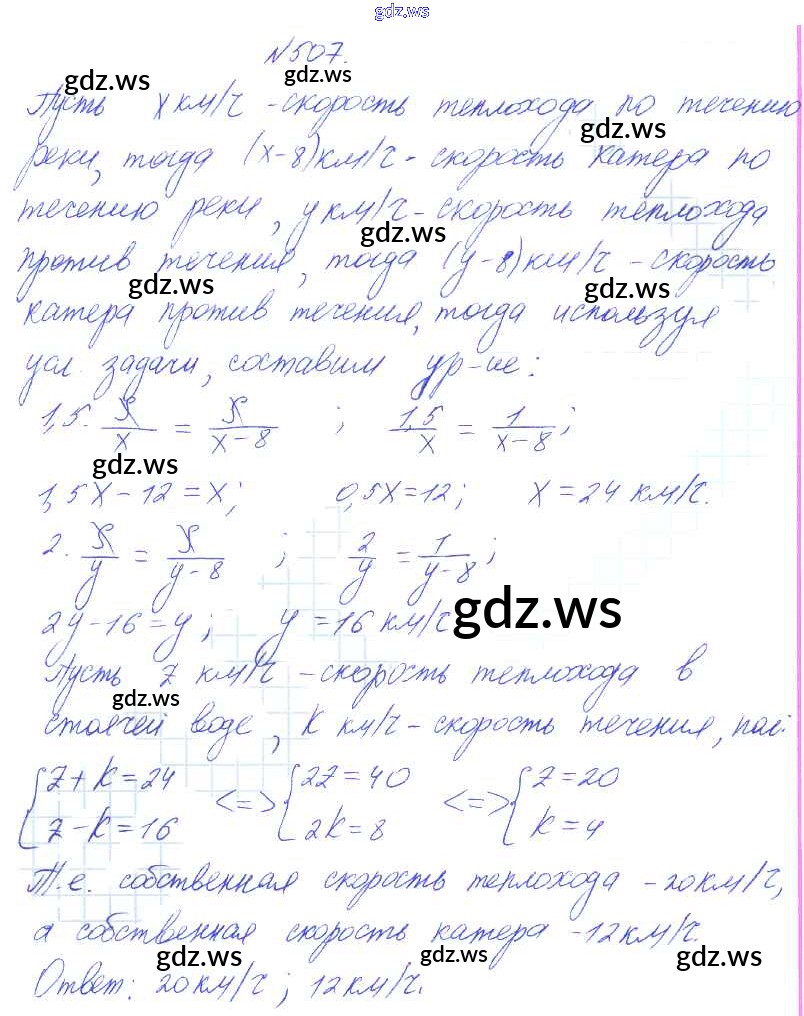 gdz.ws
№507.
gdz.ws gdz.ws
Пусть x км/ч - скорость теплохода по течению
gdz.ws
реки, тогда (x-8) км/ч - скорость катера по
течению реки, y км/ч - скорость теплохода
gdz.ws
против течения, тогда (y-8) км/ч - скорость
gdz.ws gdz.ws
катера против течения, тогда используя
усл. задачи, составим ур-ие:
1,5 · S/x = S/(x-8) ; 1,5/x = 1/(x-8) ;
gdz.ws
1,5x - 12 = x; 0,5x = 12; x = 24 км/ч.
2 · S/y = S/(y-8) ; 2/y = 1/(y-8) ;
gdz.ws
2y - 16 = y; y = 16 км/ч
Пусть z км/ч - скорость теплохода в
gdz.ws
стоячей воде, k км/ч - скорость течения,
{ z + k = 24 <=> { 2z = 40 <=> { z = 20
z - k = 16 2k = 8 k = 4
Т.е. собственная скорость теплохода - 20 км/ч,
а собственная скорость катера - 12 км/ч.
gdz.ws gdz.ws gdz.ws
Ответ: 20 км/ч; 12 км/ч.